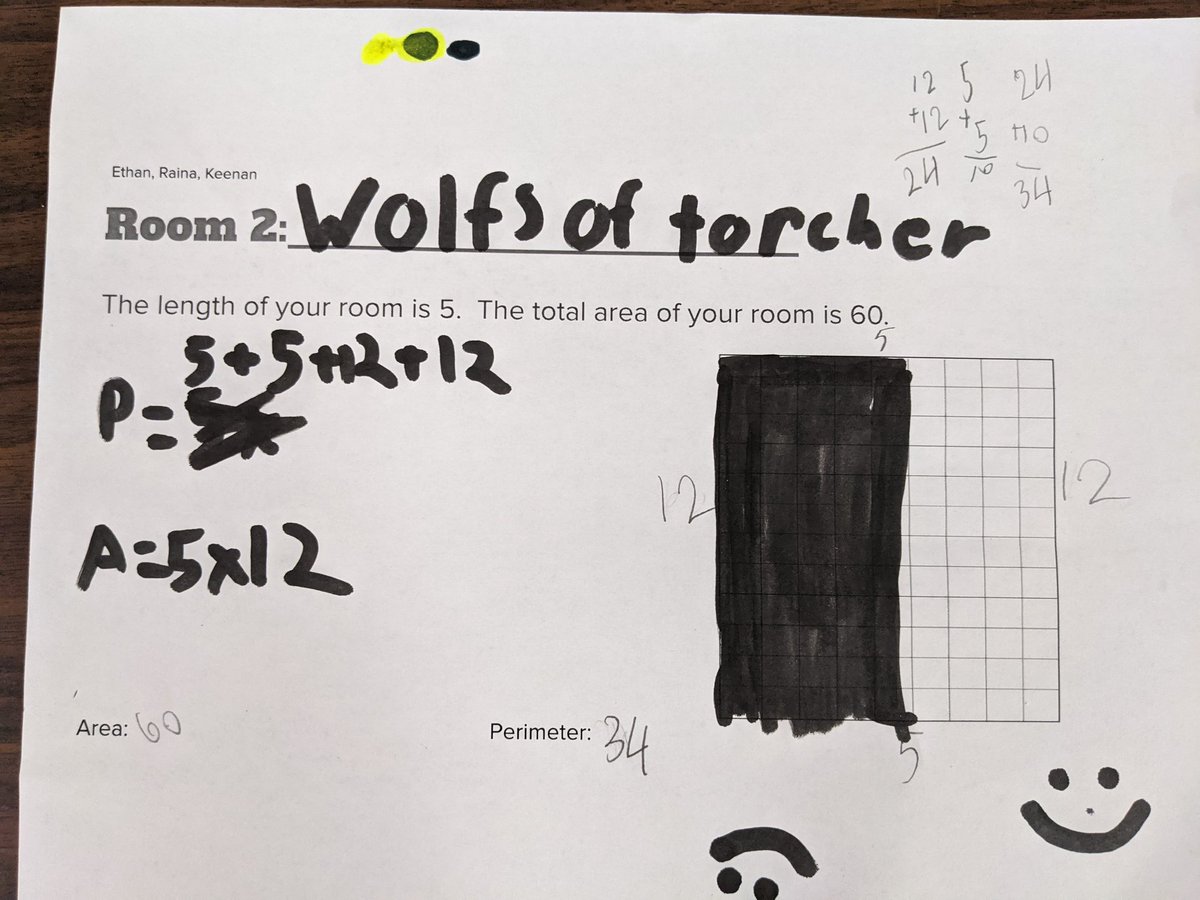 12 5 24
+12 +5 +10
24 10 34
Ethan, Raina, Keenan
Room 2: Wolfs of torcher
The length of your room is 5. The total area of your room is 60.
5
5+5+12+12
P=
12
12
A=5x12
Area: 60
Perimeter: 34
5